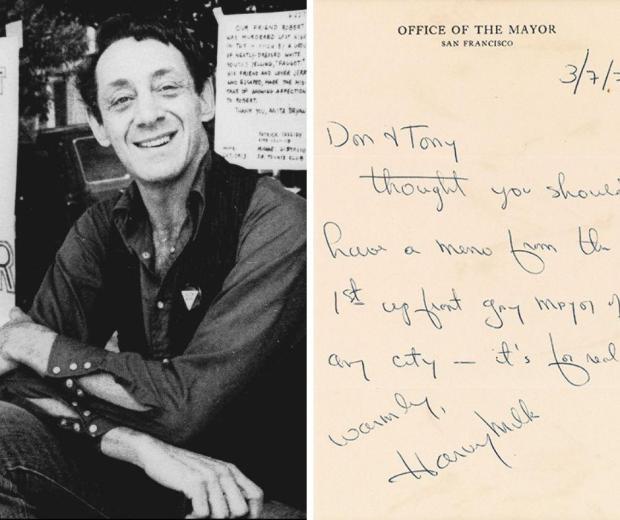 OUR FRIEND ROBERT
WAS MURDERED LAST
OF NEATLY-DRESSED WHITE
YOUTHS YELLING, "FAGGOT."
HIS FRIEND AND LOVER JERR
WHO ESCAPED, MADE THE MIS-
TAKE OF SHOWING AFFECTION
TO ROBERT.
THANK YOU, ANITA BRYAN
R
OFFICE OF THE MAYOR
SAN FRANCISCO
3/7/7
Don & Tony
thought you shoul
have a memo from the
1st up front gay mayor of
any city — it's for real
warmly,
Harvey Milk